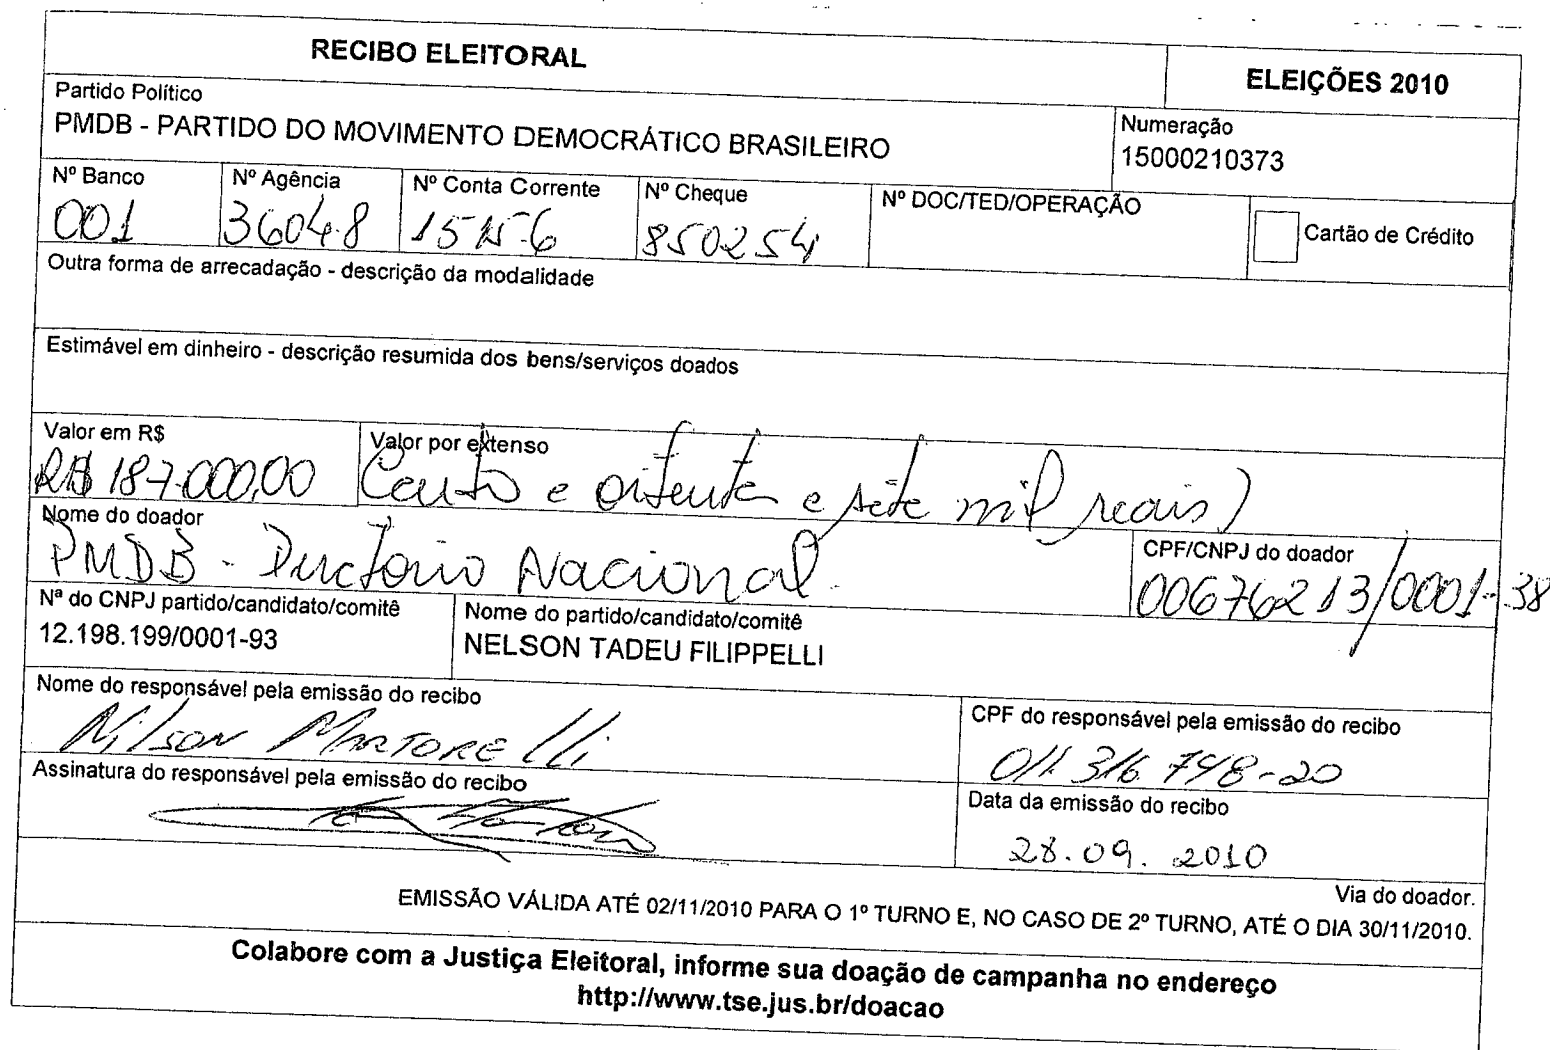 RECIBO ELEITORAL
ELEIÇÕES 2010
Partido Político
PMDB - PARTIDO DO MOVIMENTO DEMOCRÁTICO BRASILEIRO
Numeração
15000210373
Nº Banco
001
Nº Agência
3604-8
Nº Conta Corrente
Nº Cheque
850254
Nº DOC/TED/OPERAÇÃO
Cartão de Crédito
Outra forma de arrecadação - descrição da modalidade
Estimável em dinheiro - descrição resumida dos bens/serviços doados
Valor em R$
R$ 187.000,00
Valor por extenso
(Cento e oitenta e sete mil reais)
Nome do doador
PMDB - Diretório Nacional
CPF/CNPJ do doador
00676213/0001-38
Nª do CNPJ partido/candidato/comitê
12.198.199/0001-93
Nome do partido/candidato/comitê
NELSON TADEU FILIPPELLI
Nome do responsável pela emissão do recibo
Nilson Martorelli
CPF do responsável pela emissão do recibo
011.316.748-20
Assinatura do responsável pela emissão do recibo
Data da emissão do recibo
28.09.2010
Via do doador.
EMISSÃO VÁLIDA ATÉ 02/11/2010 PARA O 1º TURNO E, NO CASO DE 2º TURNO, ATÉ O DIA 30/11/2010.
Colabore com a Justiça Eleitoral, informe sua doação de campanha no endereço
http://www.tse.jus.br/doacao